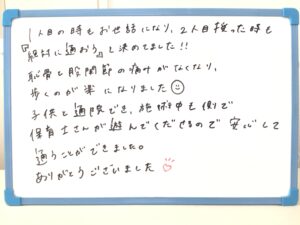 1人目の時もお世話になり、2人目産った時も
『絶対に通おう』と決めてました!!
恥骨と股関節の痛みがなくなり、
歩くのが楽になりました
子供と通院でき、施術中も側で
保育士さんが遊んでくださるので安心して
通うことができました。
ありがとうございました